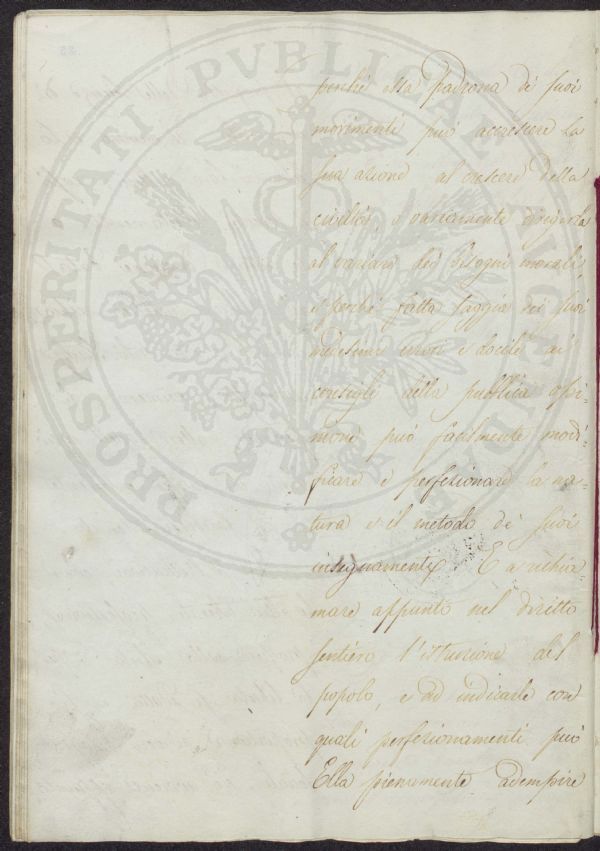 PROSPERITATI PVBLICAE AVGENDAE
perchè essa padrona de' suoi
movimenti può accrescere la
sua azione al crescere della
civiltà, o variamente
al variare dei bisogni morali,
e perchè fatta saggia dei suoi
medesimi errori e docile ai
consigli della pubblica opi-
nione può facilmente modi-
ficare e perfezionare la na-
tura e il metodo de' suoi
insegnamenti. E a richia
mare appunto nel diritto
sentiero l'istruzione del
popolo, e ad indicarle con
quali perfezionamenti può
Ella pienamente adempire